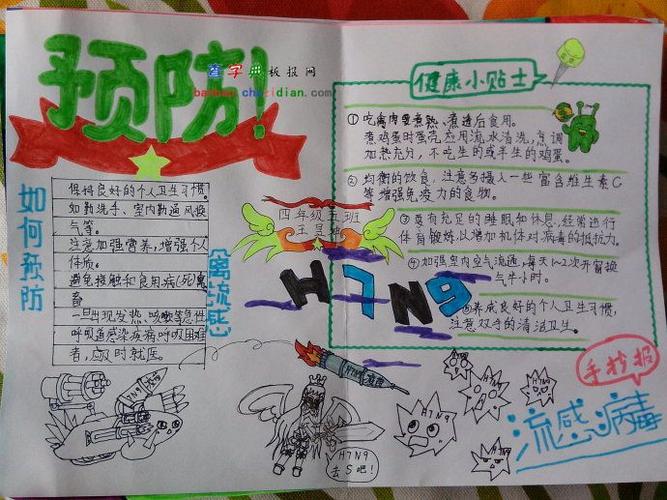 预防!
查字典板报网
banbao.chazidian.com
如何预防
保持良好的个人卫生习惯。
如勤洗手、室内勤通风换
气等。
注意加强营养,增强个人
体质。
避免接触和食用病(死)禽
畜
一旦出现发热、咳嗽等急性
呼吸道感染疾病呼吸困难
者,应及时就医
(禽流感)
四年级五班
H7N9
健康小贴士
①吃禽肉要煮熟、煮透后食用。
煮鸡蛋时蛋壳应用流水清洗,烹调
加热充分,不吃生的或半生的鸡蛋。
②均衡的饮食,注意多摄入一些富含维生素C
等增强免疫力的食物。
③要有充足的睡眠和休息,经常进行
体育锻炼以增加机体对病毒的抵抗力。
④加强室内空气流通,每天1~2次开窗换
气半小时。
⑤养成良好的个人卫生习惯,
注意双手的清洁卫生。
手抄报
流感病毒
H7N9
H7N9
H7N9
H7N9
H7N9
H7N9
去S吧!